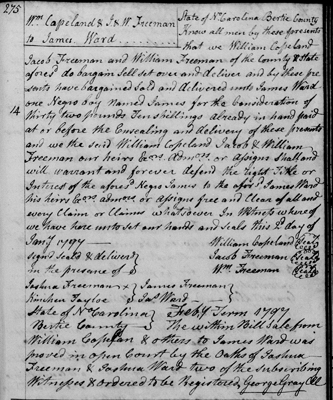 275
Wm Copeland & Ja & W Freeman
to James Ward
State of No Carolina Bertie County
Know all men by these presents
that we William Copeland
Jacob Freeman and William Freeman of the County & State
aforesd do bargain Sell set over and deliver and by these pre
sents have bargained Sold and delivered unto James Ward
14 one Negro boy Named James for the Consideration of
thirty two pounds Ten Shillings already in hand paid
at or before the Ensealing and delivery of these presents
and we the said William Copeland Jacob & William
Freeman our heirs Exrs Admrs or Assigns Shall and
will warrant and forever defend the Right Title or
Intrest of the aforesd Negro James to the aforesd James Ward
his heirs Exrs admrs or Assigns free and Clear of all and
every Claim or Claims whatsoever In Witness where of
we have here unto set our hands and Seals this 2d day of
Jany 1797 William Copeland Seal
Signd Seald & deliverd Jacob Freeman Seal
in the presence of Wm Freeman Seal
Joshua Freeman James Freeman
Kinchen Tayloe Jas Ward
State of No Carolina Feby Term 1797
Bertie County The within Bill Sale from
William Copeland & others to James Ward was
proved in open Court by the Oaths of Joshua
Freeman & Joshua Ward two of the Subscribing
Witnesses & ordered to be Registered George Gray